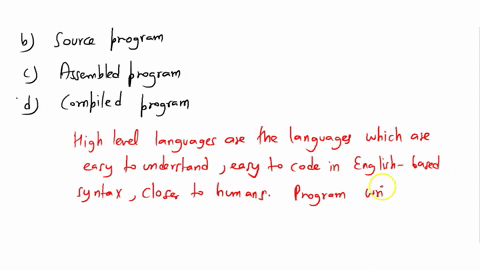 b) Source program
c) Assembled program
d) Compiled program
High level languages are the languages which are
easy to understand, easy to code in English-based
syntax, closer to humans. Program wri